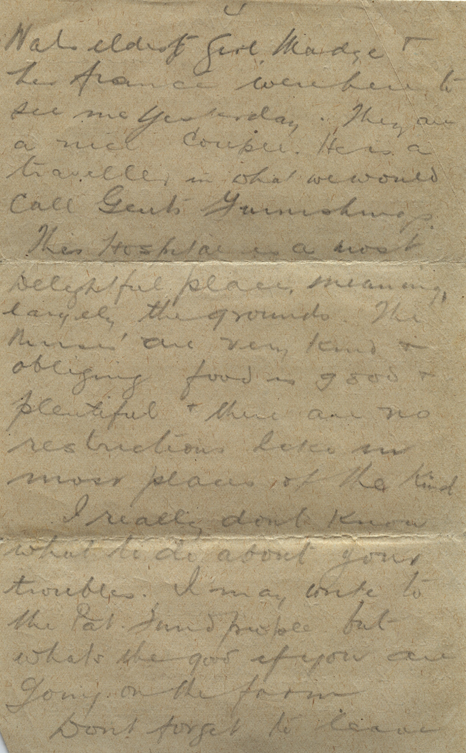 4
Nat's eldest girl Madge &
her fiance were here to
see me yesterday. They are
a nice couple. He is a
traveller in what we would
call Gents Furnishings.
This Hospital is a most
delightful place, meaning,
largely the grounds. The
Nurses are very kind &
obliging food is good &
plentiful & there are no
restrictions like in
most places of the kind
I really dont know
what to do about your
troubles. I may write to
the Pat. Fund people but
whats the good if you are
going on the farm
Dont forget to leave